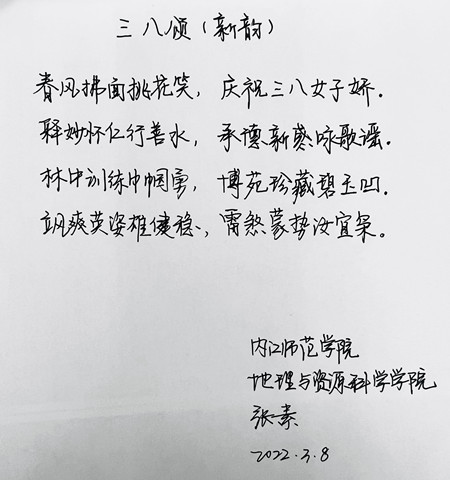 三八颂（新韵）
春风拂面桃花笑，庆祝三八女子娇．
释妙怀仁行善水，承德新 咏歌谣．
林中训练巾帼勇，博苑珍藏碧玉凹．
飒爽英姿雄健稳，雷煞蒙势汝宜枭。
内江师范学院
地理与资源科学学院
张素
2022.3.8